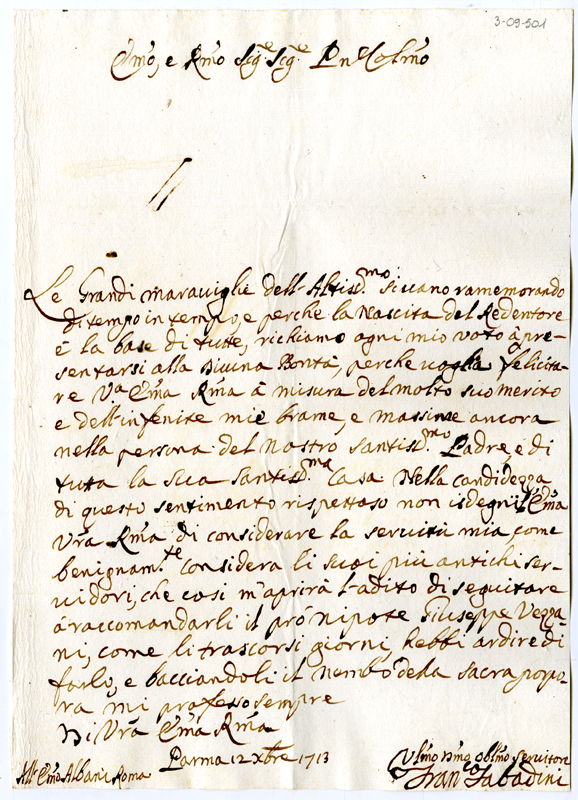 3-09-501
Emo, e Rmo Sigre Sigre Pne Colmo
Le Grandi maraviglie dell'Altissmo si vano ramemorando
di tempo in tempo, e perche la Nascita del Redentore
è la base di tutte, richiamo ogni mio voto à pre-
sentarsi alla Divina Bontà, perche voglia felicita-
re Va Emza Rma à misura del molto suo merito
e dell'infenite mie brame, e massime ancora
nella persona del Nostro Santissmo Padre, e di
tutta la sua Santissma Casa. Nella candidezza
di questo sentimento rispettoso non isdegni l'Emza
Vra Rma di considerare la servitù mia come
benignamte considera li suoi più antichi ser-
vidori, che cosi m'aprirà l'adito di seguitare
à raccomandarli il pró nipote Giuseppe Vezza-
ni, come li trascorsi giorni, hebbi ardire di
farlo, e bacciandoli il nembo della sacra porpo-
ra mi professo sempre
Di Vra Emza Rma
Parma 12 Xbre 1713
All' Emo Albani Roma
Vmo Dmo Oblmo Servitore
Franco Sabadini